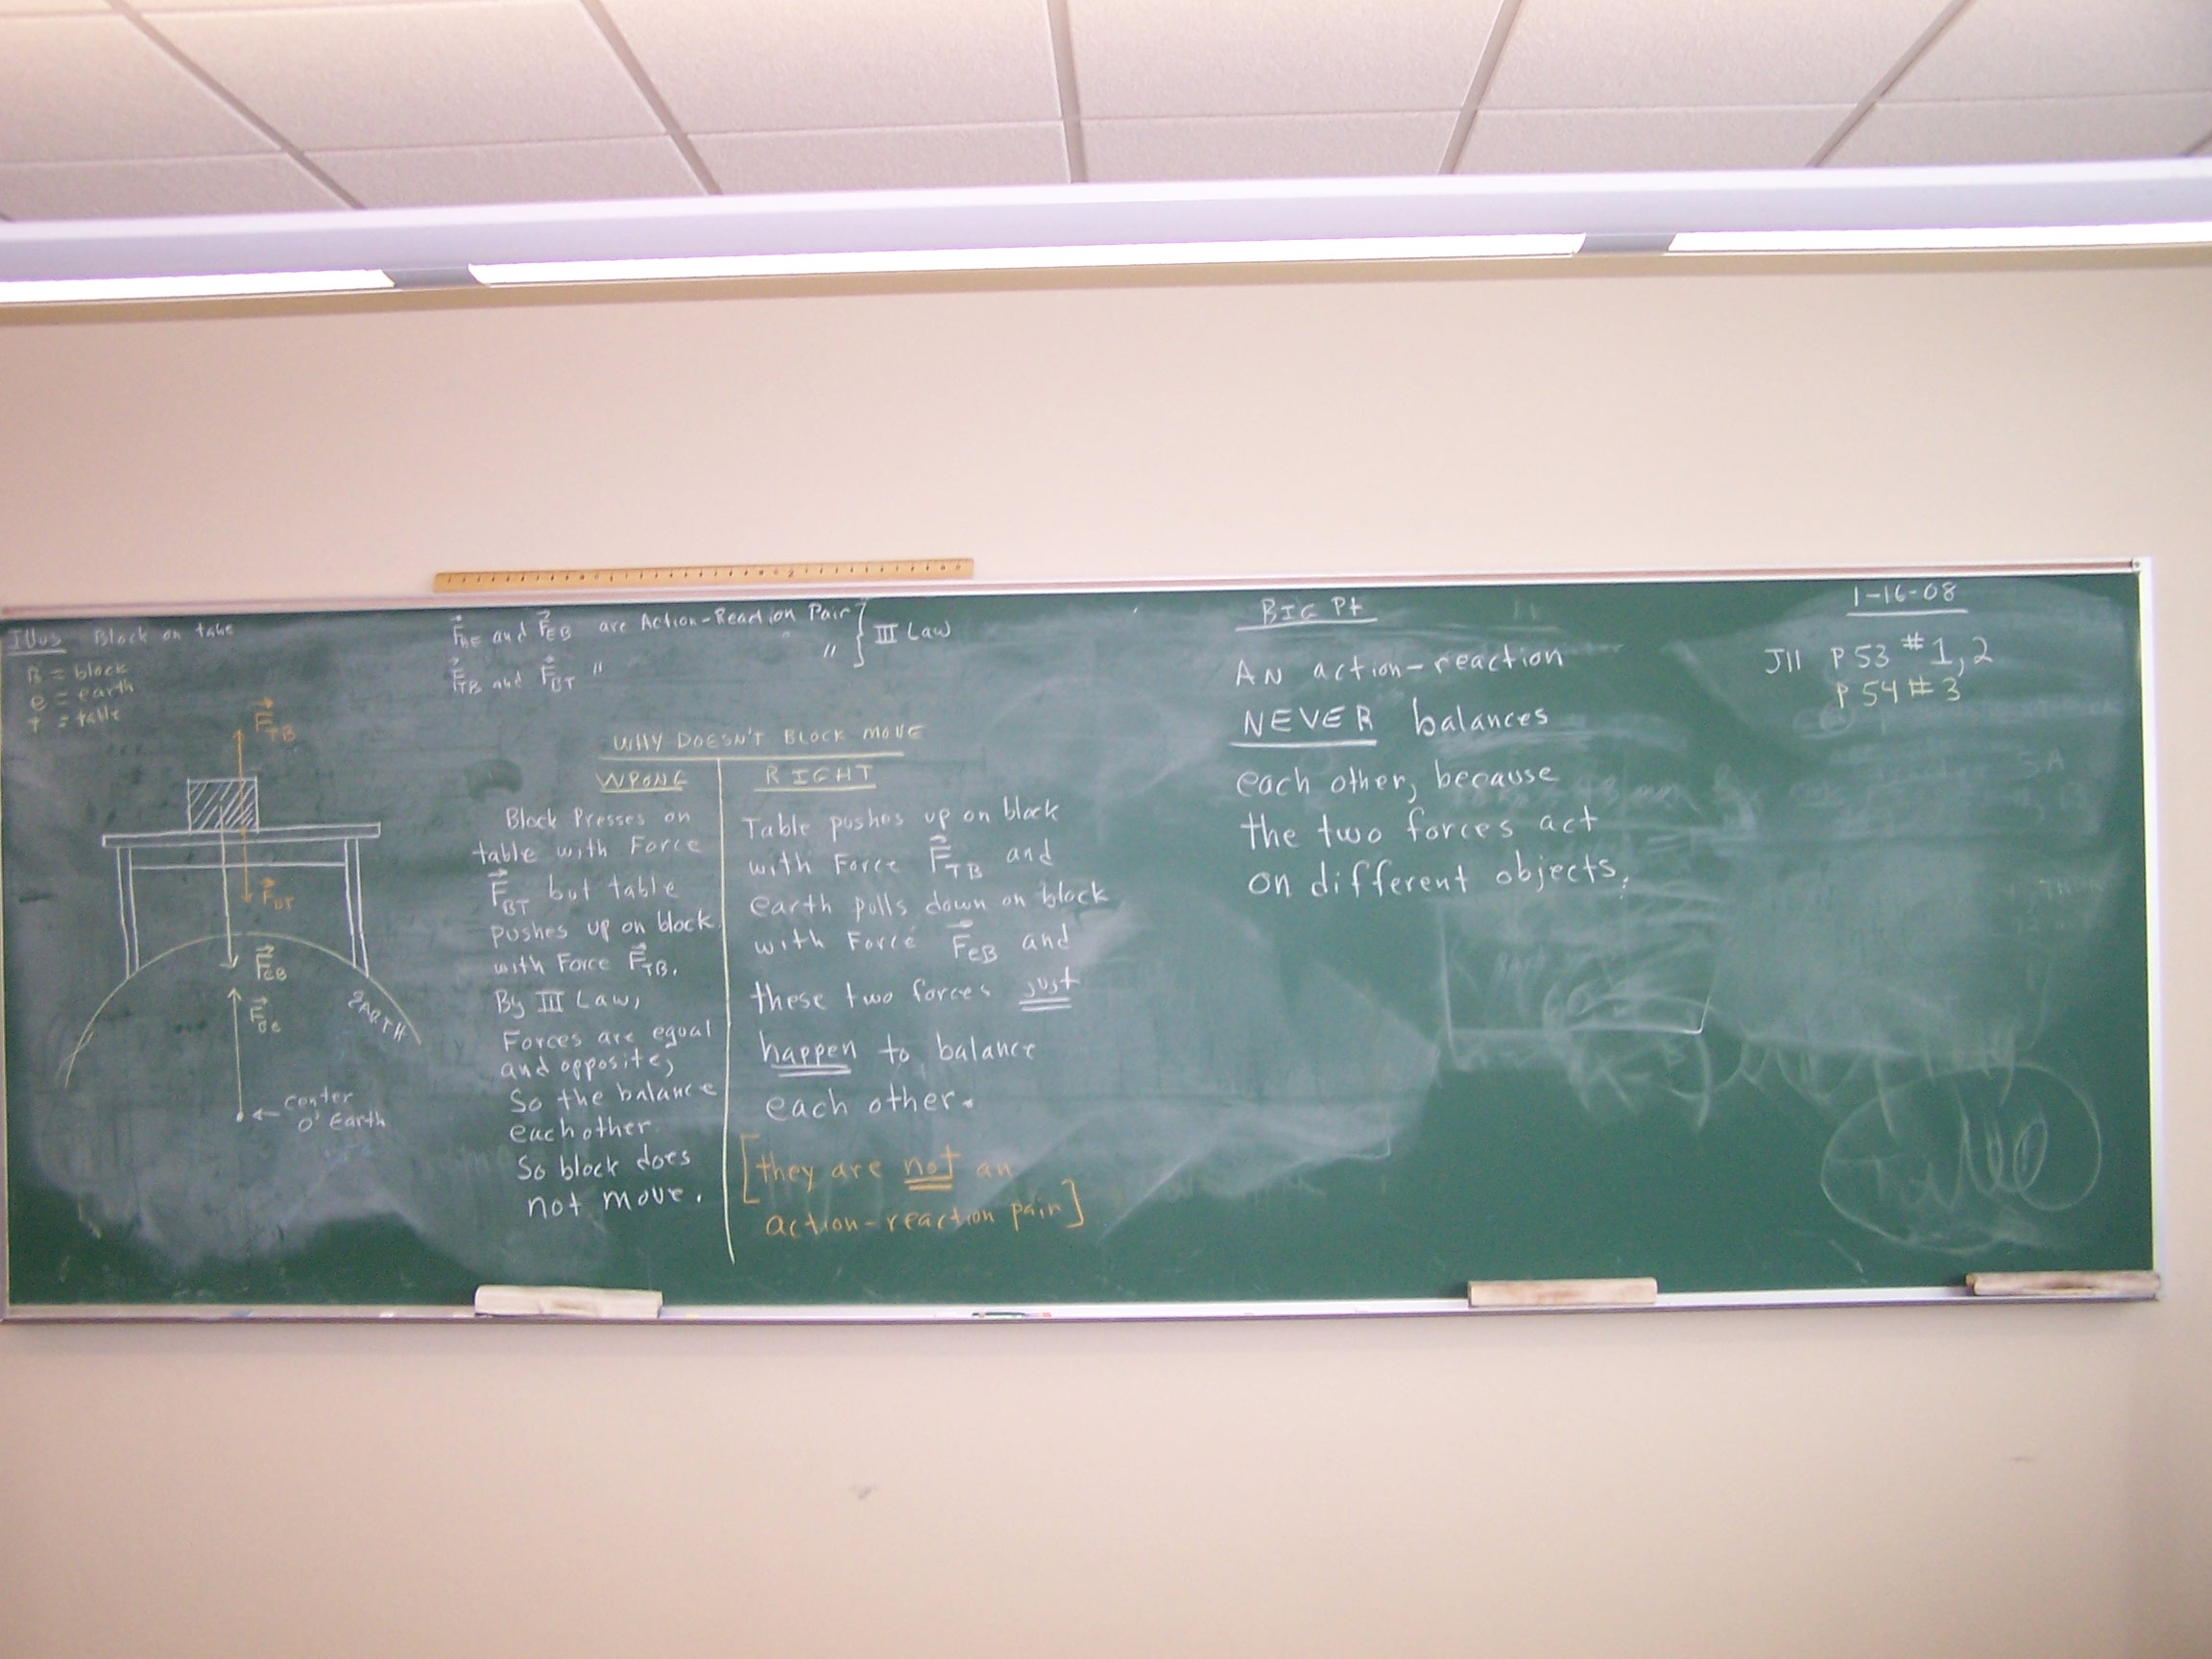 Illus Block on table
B = block
e = earth
T = table
F⃗TB
F⃗BT
F⃗eB
F⃗Be
EARTH
← center
O' Earth
F⃗BE and F⃗EB are Action-Reaction Pair
F⃗TB and F⃗BT " "
} III Law
WHY DOESN'T BLOCK MOVE
WRONG
Block Presses on
table with Force
F⃗BT but table
pushes up on block
with Force F⃗TB.
By III Law,
Forces are equal
and opposite,
So the balance
each other.
So block does
not move.
RIGHT
Table pushes up on block
with Force F⃗TB and
earth pulls down on block
with Force F⃗eB and
these two forces just
happen to balance
each other.
[they are not an
action-reaction pair]
BIG Pt
AN action-reaction
NEVER balances
each other, because
the two forces act
on different objects.
1-16-08
J11 P 53 # 1, 2
P 54 # 3